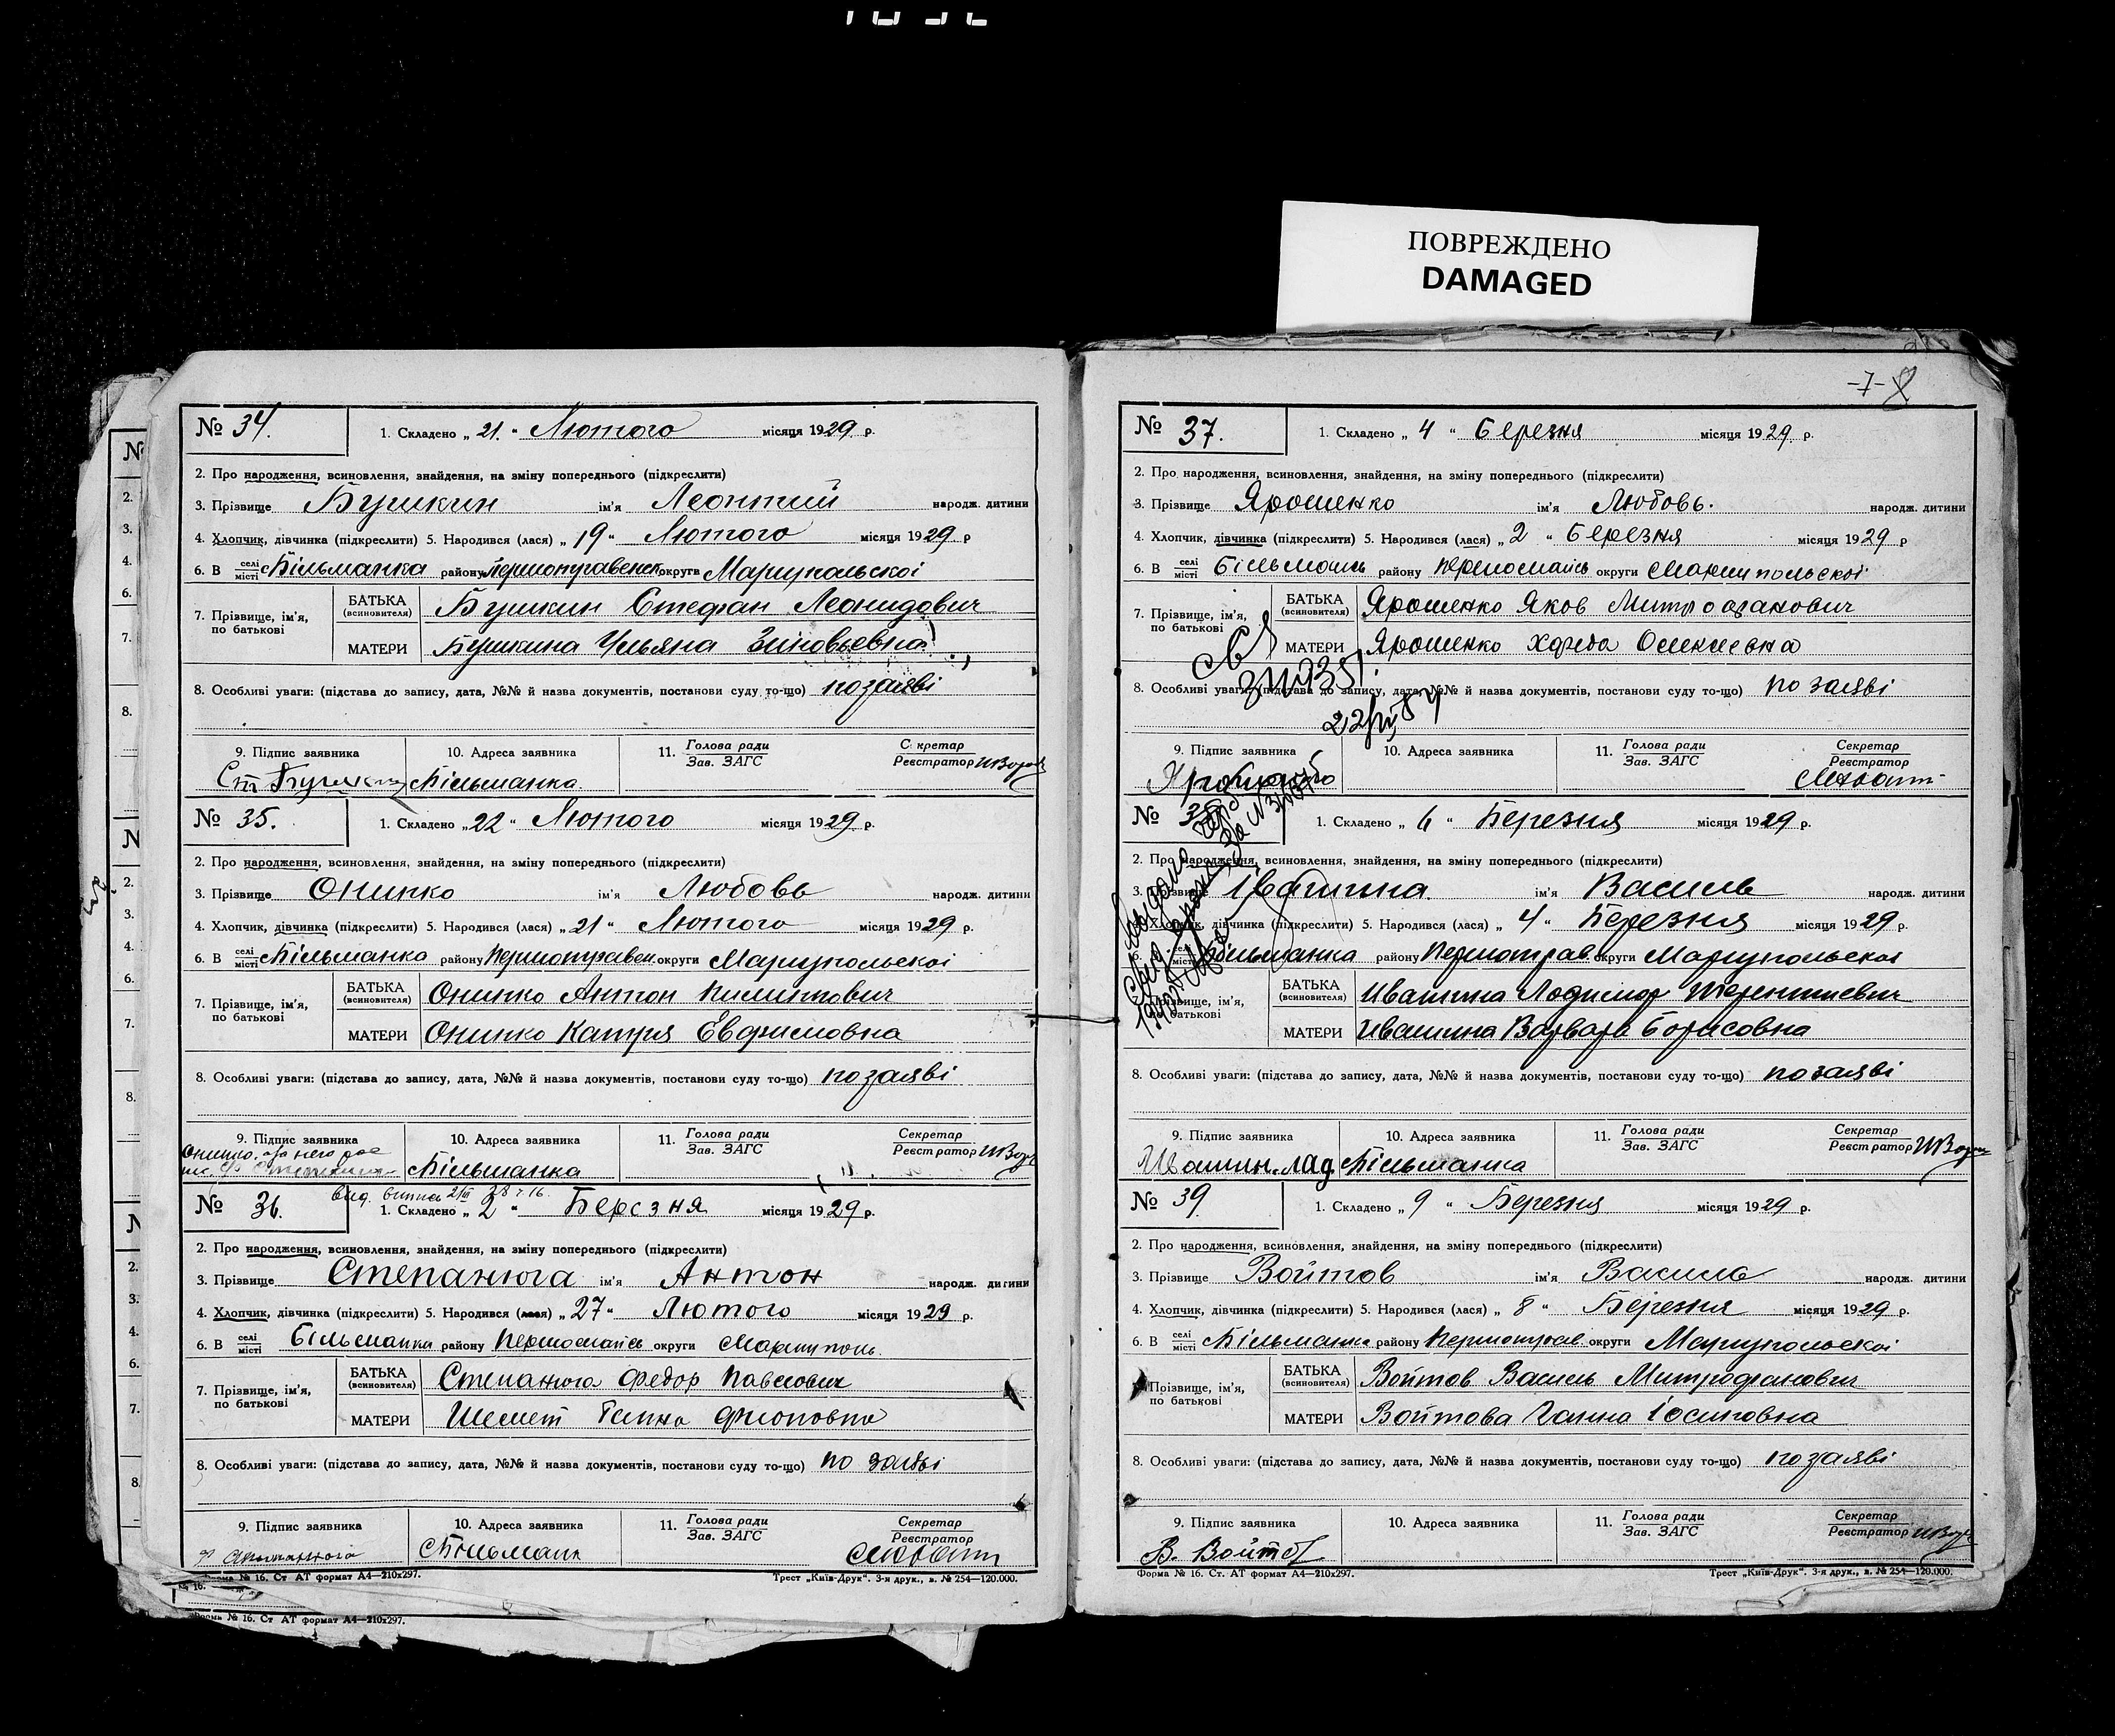 ПОВРЕЖДЕНО
DAMAGED
№ 34.
1. Складено „ 21. “ Лютого місяця 1929 р.
2. Про народження, всиновлення, знайдення, на зміну попереднього (підкреслити)
3. Прізвище Бушкин ім'я Леонтий народж. дитини
4. Хлопчик, дівчинка (підкреслити) 5. Народився (лася) „ 19 “ Лютого місяця 1929 р
6. В селі місті Більманка району округи Маріупольскої
7. Прізвище, ім'я, по батькові
БАТЬКА (всиновителя) Бушкин Стефан Леонидович
МАТЕРИ Бушкина Ульяна Зіновьевна
8. Особливі уваги: (підстава до запису, дата, №№ й назва документів, постанови суду то-що) по заяві
9. Підпис заявника Ст Бушкин
10. Адреса заявника Більманка
11. Голова ради Зав. ЗАГС
Секретар Реєстратор
№ 35.
1. Складено „ 22 “ Лютого місяця 1929 р.
2. Про народження, всиновлення, знайдення, на зміну попереднього (підкреслити)
3. Прізвище Онипко ім'я Любовь народж. дитини
4. Хлопчик, дівчинка (підкреслити) 5. Народився (лася) „ 21 “ Лютого місяця 1929 р.
6. В селі місті Більманка району округи Маріупольскої
7. Прізвище, ім'я, по батькові
БАТЬКА (всиновителя) Онипко Антон
МАТЕРИ Онипко Катря Евфимовна
8. Особливі уваги: (підстава до запису, дата, №№ й назва документів, постанови суду то-що) по заяві
9. Підпис заявника
10. Адреса заявника Більманка
11. Голова ради Зав. ЗАГС
Секретар Реєстратор
№ 36.
1. Складено „ 2 “ Березня місяця 1929 р.
2. Про народження, всиновлення, знайдення, на зміну попереднього (підкреслити)
3. Прізвище Степанюга ім'я Антон народж. дитини
4. Хлопчик, дівчинка (підкреслити) 5. Народився (лася) „ 27 “ Лютого місяця 1929 р.
6. В селі місті Більманки району Первомайсь округи Мариуполь.
7. Прізвище, ім'я, по батькові
БАТЬКА (всиновителя) Степанюга Федор Павлович
МАТЕРИ Шемет Ганна
8. Особливі уваги: (підстава до запису, дата, №№ й назва документів, постанови суду то-що) по заяві
9. Підпис заявника
10. Адреса заявника Більманк
11. Голова ради Зав. ЗАГС
Секретар Реєстратор
Форма № 16. Ст АТ формат А4—210х297. Трест „Київ-Друк“. 3-я друк., в. № 254—120.000.
№ 16. Ст АТ формат А4—210х297.
-7-
№ 37.
1. Складено „ 4 “ Березня місяця 1929 р.
2. Про народження, всиновлення, знайдення, на зміну попереднього (підкреслити)
3. Прізвище Ярошенко ім'я Любовь. народж. дитини
4. Хлопчик, дівчинка (підкреслити) 5. Народився (лася) „ 2 “ Березня місяця 1929 р
6. В селі місті району Первомайсь округи Мариупольскої
7. Прізвище, ім'я, по батькові
БАТЬКА (всиновителя) Ярошенко Яков Митрофанович
МАТЕРИ Ярошенко
8. Особливі уваги: (підстава до запису, дата, №№ й назва документів, постанови суду то-що) по заяві
9. Підпис заявника
10. Адреса заявника
11. Голова ради Зав. ЗАГС
Секретар Реєстратор
№ 38
1. Складено „ 6 “ Березня місяця 1929 р.
2. Про народження, всиновлення, знайдення, на зміну попереднього (підкреслити)
3. Прізвище Івашина. ім'я Василь народж. дитини
4. Хлопчик, дівчинка (підкреслити) 5. Народився (лася) „ 4 “ Березня місяця 1929 р.
6. В селі місті Більманка району Першотрав. округи Маріупольскої
7. Прізвище, ім'я, по батькові
БАТЬКА (всиновителя) Ивашина Лодимор Терентиевич
МАТЕРИ Ивашина Варвара Борисовна
8. Особливі уваги: (підстава до запису, дата, №№ й назва документів, постанови суду то-що) по заяві
9. Підпис заявника
10. Адреса заявника Більманка
11. Голова ради Зав. ЗАГС
Секретар Реєстратор
№ 39
1. Складено „ 9 “ Березня місяця 1929 р.
2. Про народження, всиновлення, знайдення, на зміну попереднього (підкреслити)
3. Прізвище Войтов ім'я Василь народж. дитини
4. Хлопчик, дівчинка (підкреслити) 5. Народився (лася) „ 8 “ Березня місяця 1929 р.
6. В селі місті Більманка району Першотрав. округи Маріупольскої
7. Прізвище, ім'я, по батькові
БАТЬКА (всиновителя) Войтов Василь Митрофанович
МАТЕРИ Войтова Ганна Іосиповна
8. Особливі уваги: (підстава до запису, дата, №№ й назва документів, постанови суду то-що) по заяві
9. Підпис заявника В. Войтов
10. Адреса заявника
11. Голова ради Зав. ЗАГС
Секретар Реєстратор
Форма № 16. Ст. АТ формат А4—210х297. Трест „Київ-Друк“. 3-я друк., в. № 254—120.000.